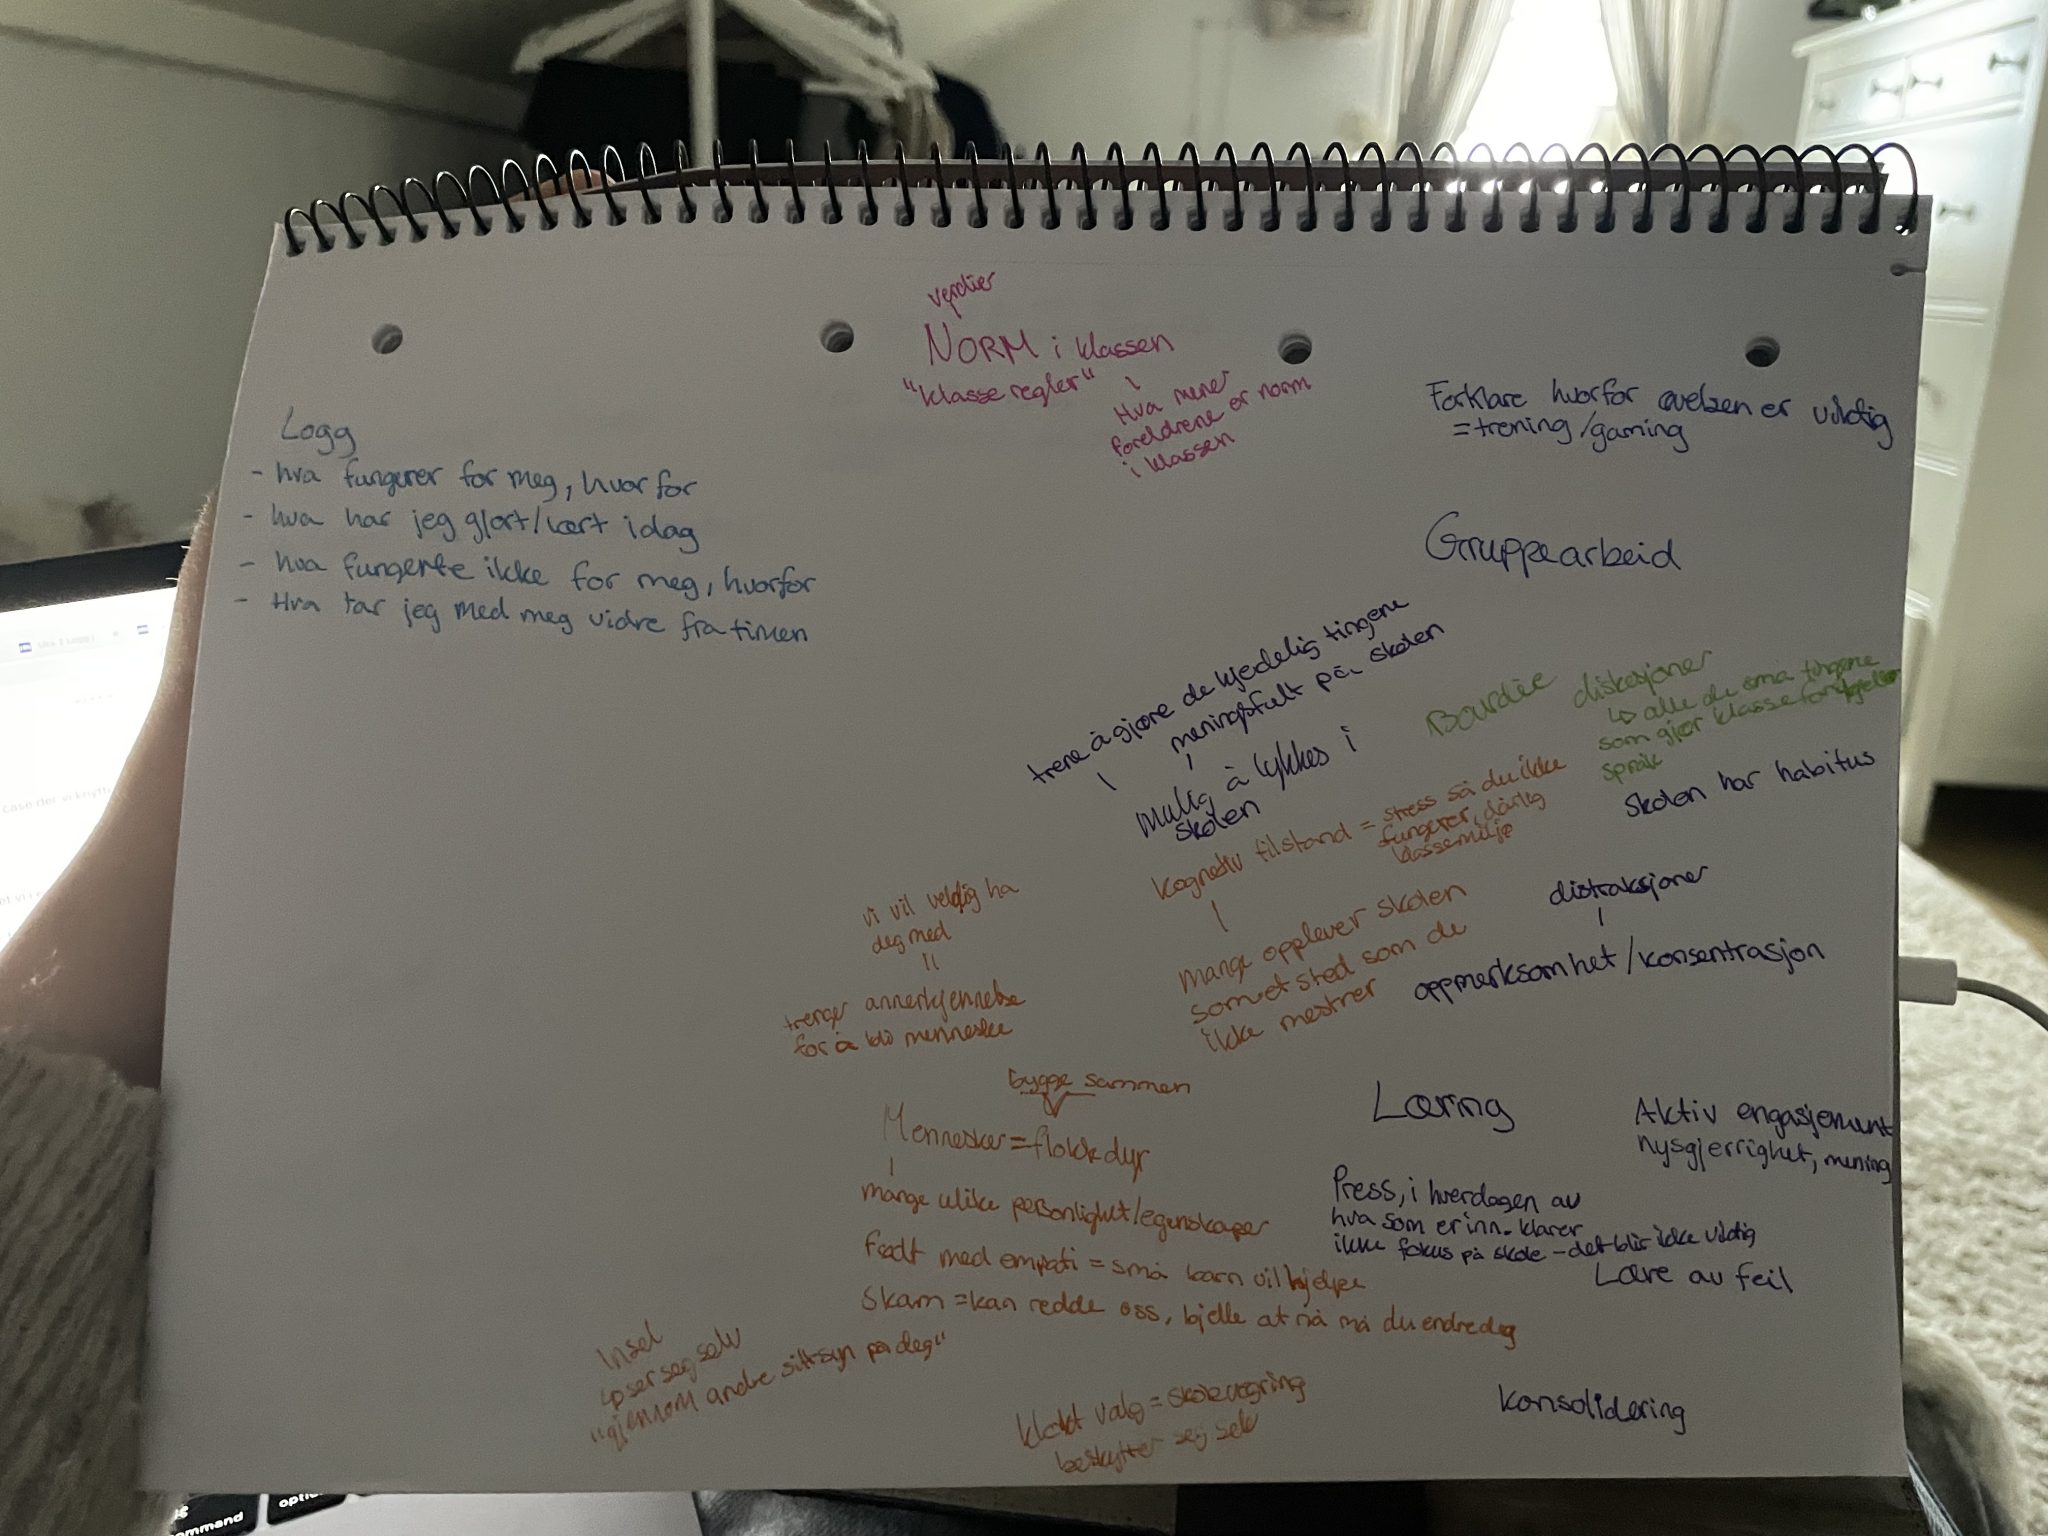 verdier
NORM i klassen
"klasse regler"
Hva mener
foreldrene er norm
i klassen
Logg
- hva fungerer for meg, hvorfor
- hva har jeg gjort/lært idag
- hva fungerte ikke for meg, hvorfor
- Hva tar jeg med meg vidre fra timen
Forklare hvorfor øvelsen er viktig
= trening/gaming
Gruppearbeid
trene å gjøre de kjedelig tingene
meningsfult på skolen
mulig å lykkes i
skolen
Bourdie
diskesjoner
↳ alle de små tingene
som gjør klasse
språk
Skolen har habitus
Kognetiv tilstand = stress så du ikke
fungerer, dårlig
klassemiljø
mange opplever skolen
som et sted som de
ikke mestrer
distraksjoner
oppmerksomhet/konsentrasjon
vi vil veldig ha
deg med
=
trenger annerkjennelse
for å bli menneske
bygge sammen
Mennesker = flokkdyr
mange ulike personlighet/egenskaper
Født med empati = små barn vil hjelpe
Skam = kan redde oss, bjelle at nå må du endre deg
Læring
Aktiv engasjement
nysgjerrighet, mening
Press, i hverdagen av
hva som er inn. klarer
ikke fokus på skole - det blir ikke viktig
Lære av feil
Insel
↳ ser seg selv
"gjennom andre sitt syn på deg"
klokt valg = skolevegring
beskytter seg selv
Konsolidering
command